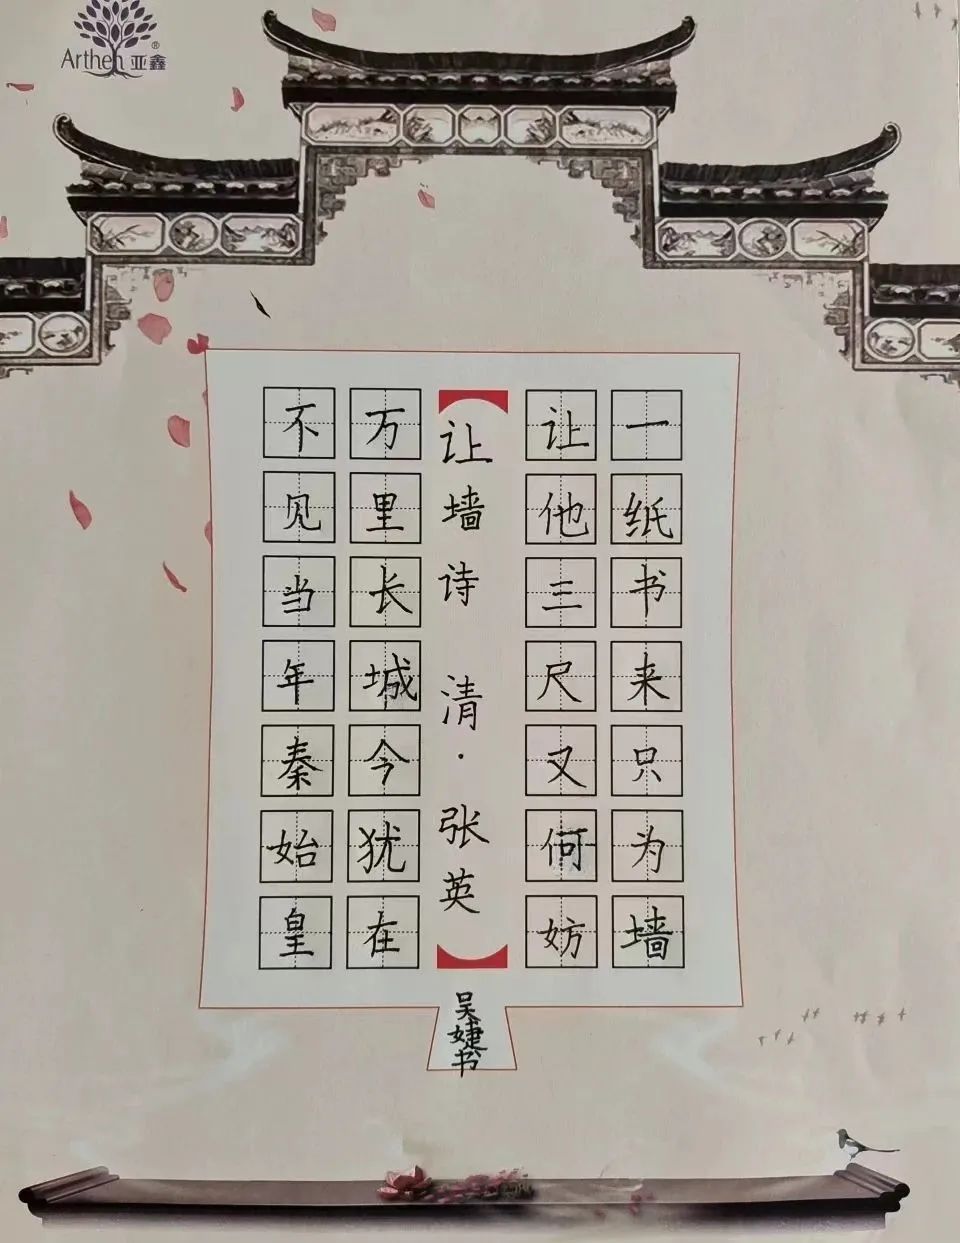 Arthen® 亚鑫
一纸书来只为墙
让他三尺又何妨
让墙诗 清·张英
万里长城今犹在
不见当年秦始皇
吴婕书